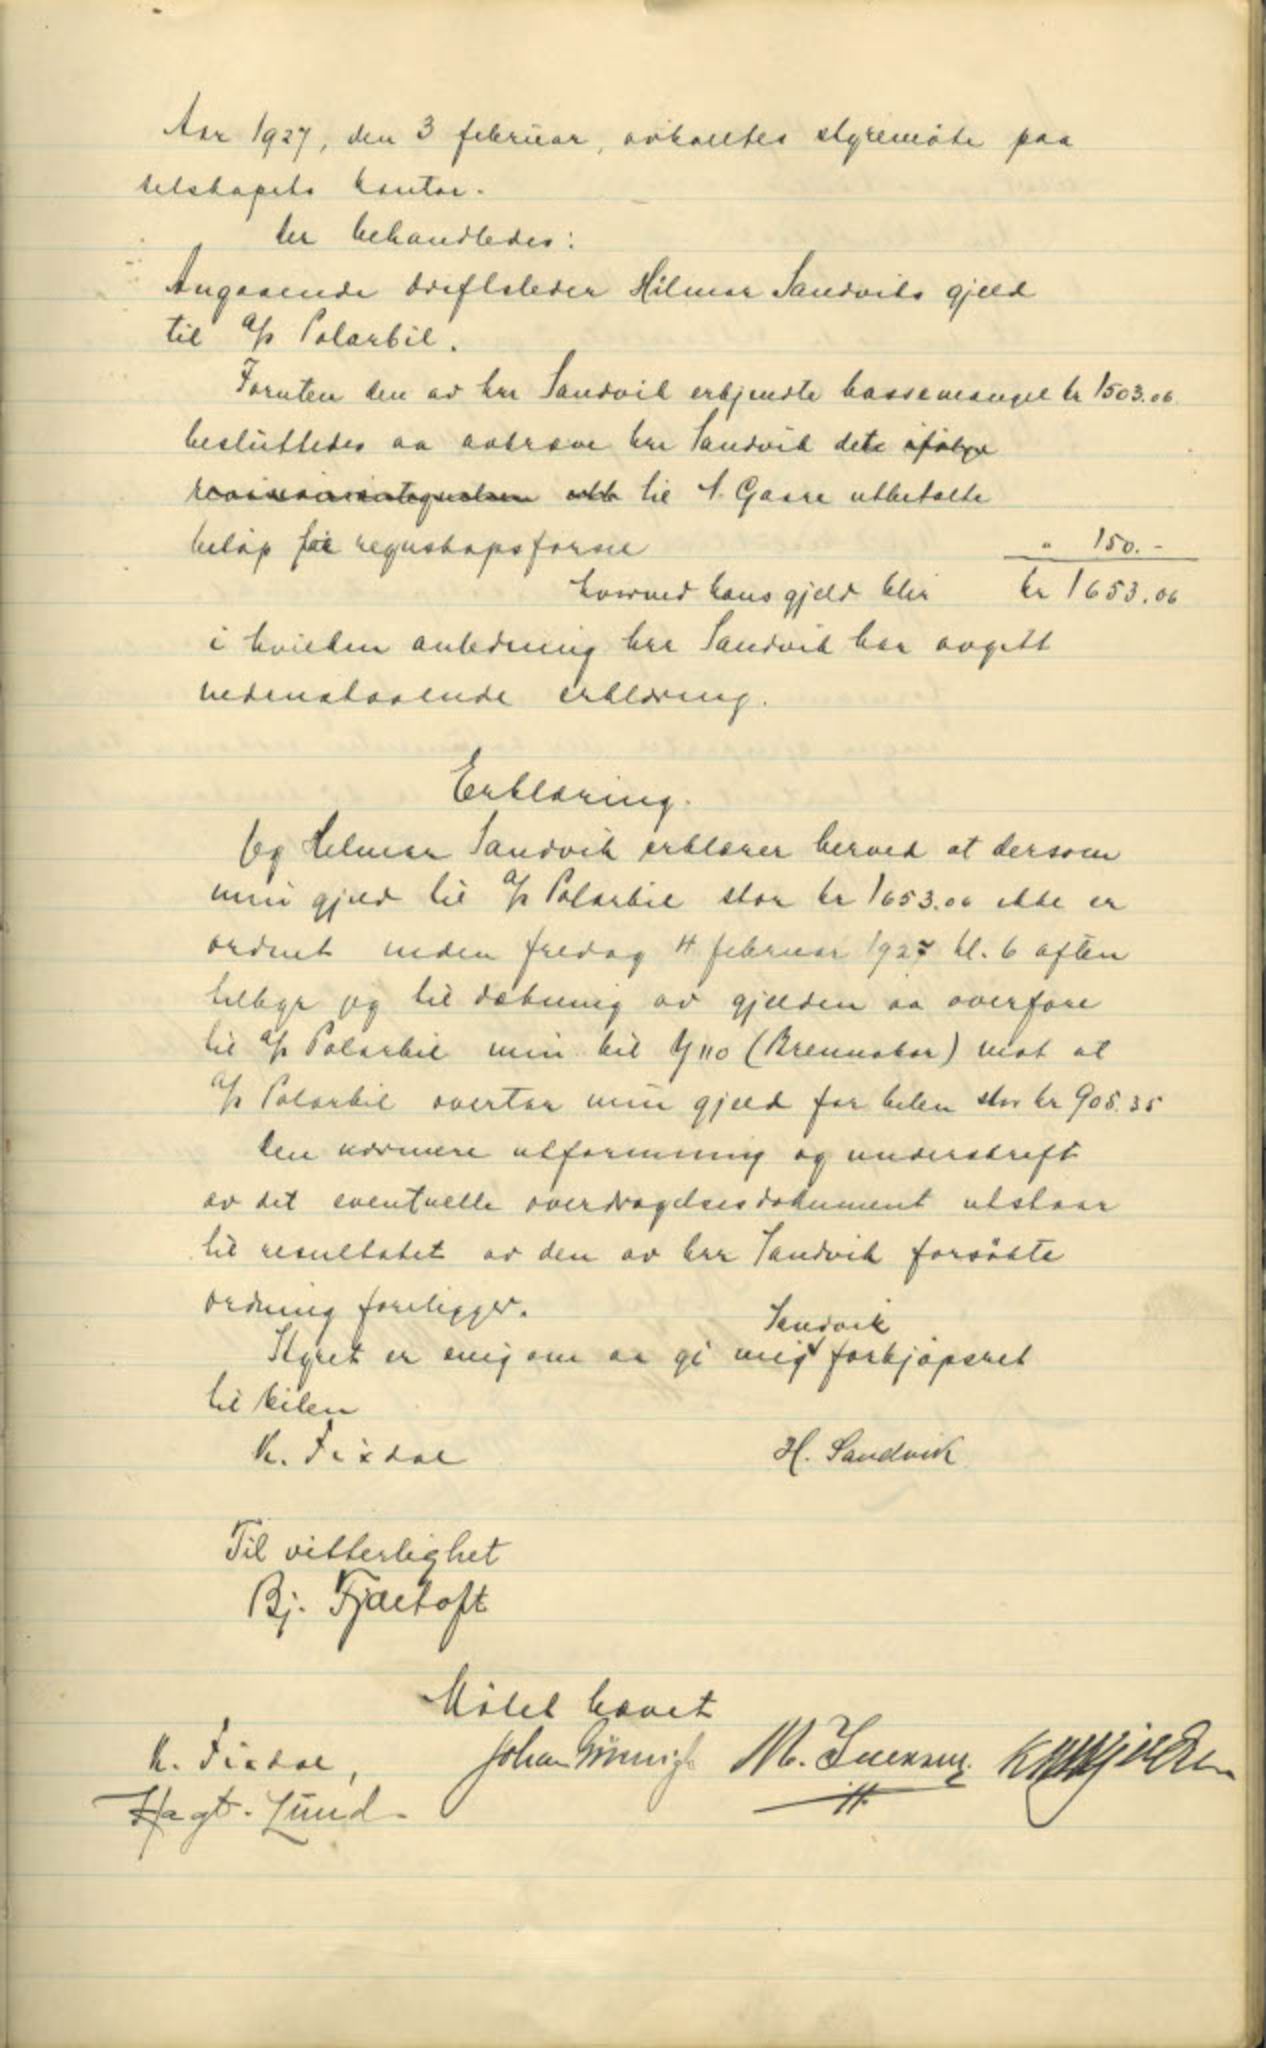 Aar 1927, den 3 februar, avholdtes styremøte paa
selskapets kontor.
Der behandledes:
Angaaende driftsleder Hilmar Sandviks gjeld
til A/S Polarbil.
Foruten den av hr Sandvik erkjendte kassemangel kr 1503.06
besluttedes aa avkræve hr Sandvik det ifølge
til A. Gaare utbetalte
beløp for regnskapsførsel " 150.-
hvorved hans gjeld blir kr 1653.06
i hvilken anledning hr Sandvik har avgitt
nedenstaaende erklæring.
Erklæring.
Jeg Helmer Sandvik erklærer herved at dersom
min gjeld til A/S Polarbil stor kr 1653.06 ikke er
ordnet inden fredag 4 februar 1927 kl. 6 aften
tilbyr jeg til dækning av gjelden aa overføre
til A/S Polarbil min bil Y 110 (Brennabor) mot at
A/S Polarbil overtar min gjeld for bilen stor kr 905.35
Den nærmere utformning og underskrift
av det eventuelle overdragelsesdokument utstaar
til resultatet av den av hr Sandvik forsøkte
ordning foreligger.
Sandvik
Styret er enig om aa gi mig forkjøpsret
til bilen
K. Fixdal H. Sandvik
Til vitterlighet
Bj. Fjærtoft
Møtet hævet
K. Fixdal, Johan M.
Hagb. Lund